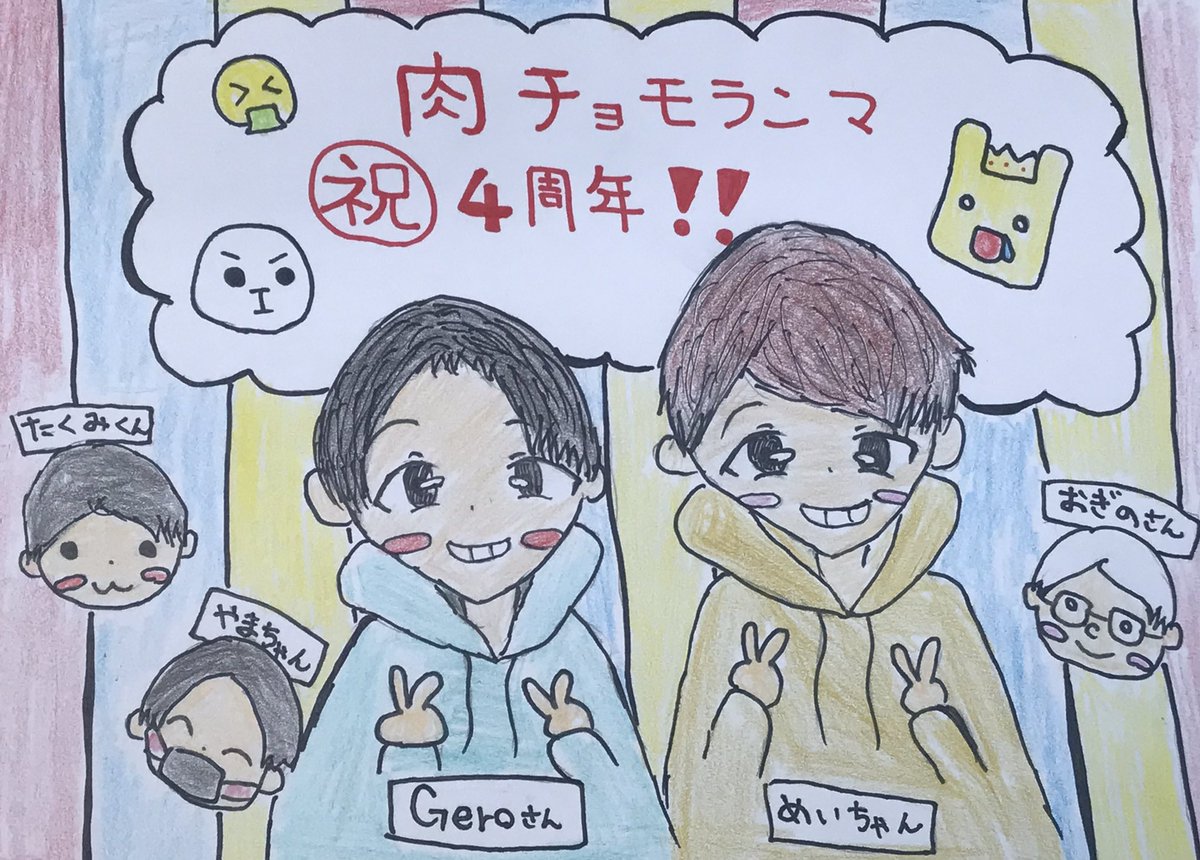 肉チョモランマ
祝 4周年!!
たくみくん
やまちゃん
おぎのさん
Geroさん
めいちゃん